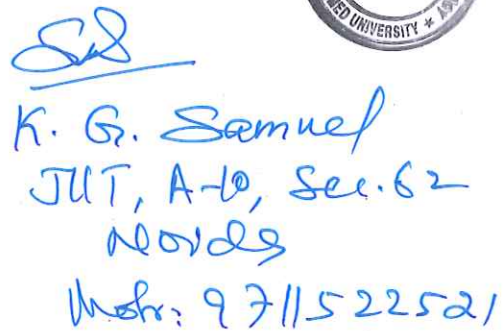 ED UNIVERSITY *
K. G. Samuel
JIIT, A-10, Sec. 62
Noida
Mob: 9711522521